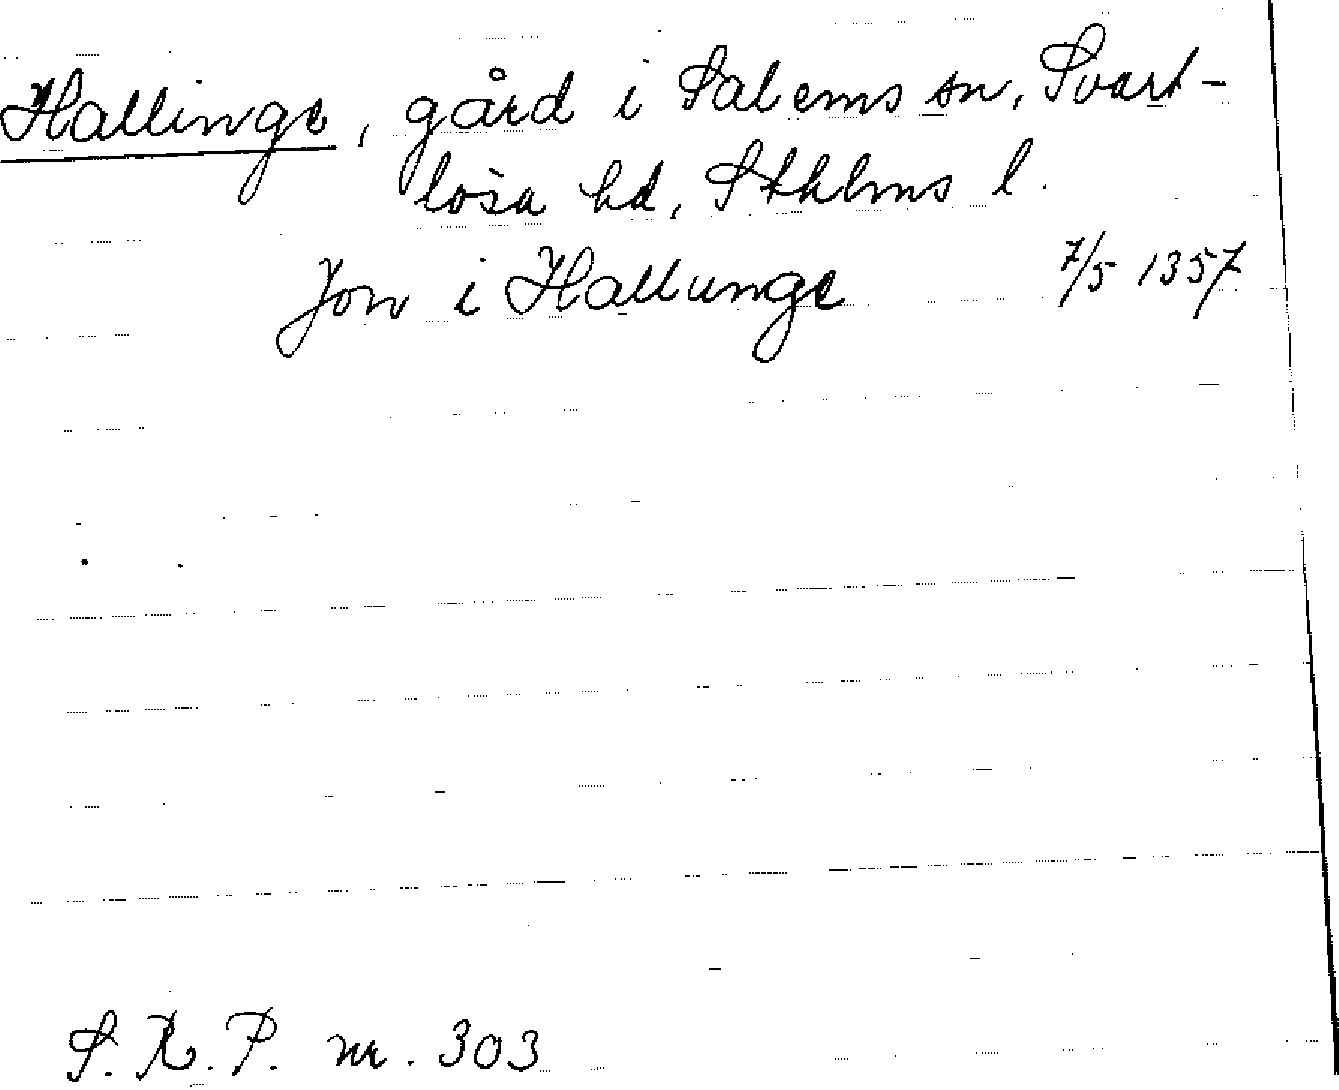 Hallinge, gård i Salems sn, Svart-
lösa hd, Sthlms l.
Jon i Hallunge 7/5 1357
S.R.P. nr. 303